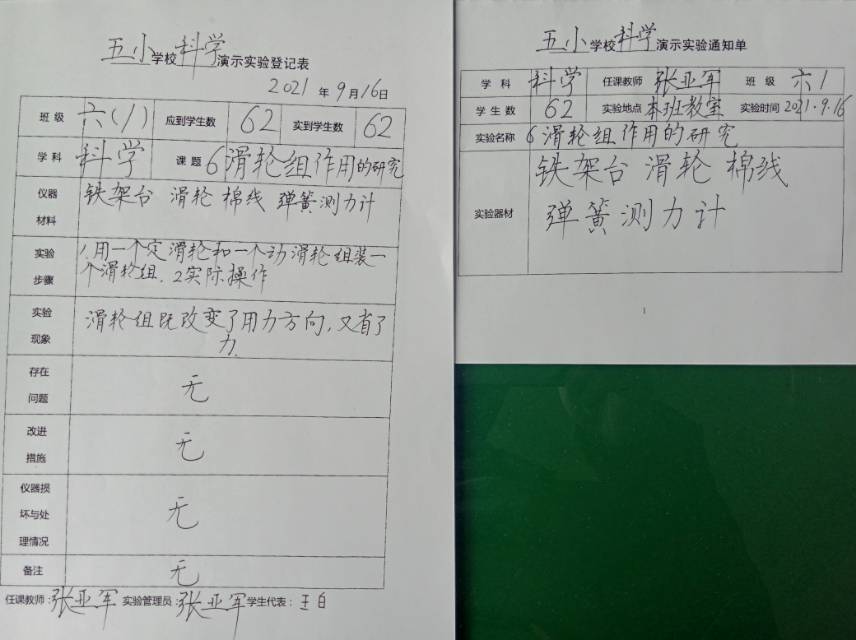 五小学校科学演示实验登记表
2021年9月16日
班级 六(1) 应到学生数 62 实到学生数 62
学科 科学 课题 6滑轮组作用的研究
仪器材料 铁架台 滑轮 棉线 弹簧测力计
实验步骤 1.用一个定滑轮和一个动滑轮组装一
个滑轮组.2实际操作
实验现象 滑轮组既改变了用力方向,又省了
力.
存在问题 无
改进措施 无
仪器损坏与处理情况 无
备注 无
任课教师:张亚军 实验管理员:张亚军 学生代表:王白
五小学校科学演示实验通知单
学科 科学 任课教师 张亚军 班级 六1
学生数 62 实验地点 本班教室 实验时间 2021.9.16
实验名称 6滑轮组作用的研究
实验器材 铁架台 滑轮 棉线
弹簧测力计
1